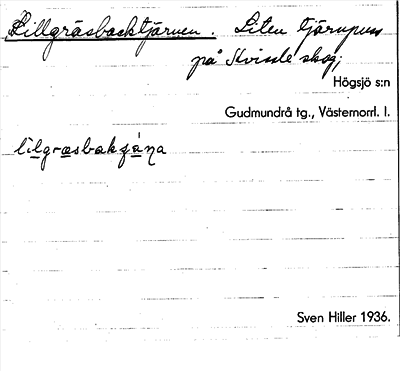 Lillgräsbacktjärnen. Liten tjärnpuss
på Kvissle skog;
Högsjö s:n
Gudmundrå tg., Västernorrl. l.
lilgræsbakʃána
Sven Hiller 1936.